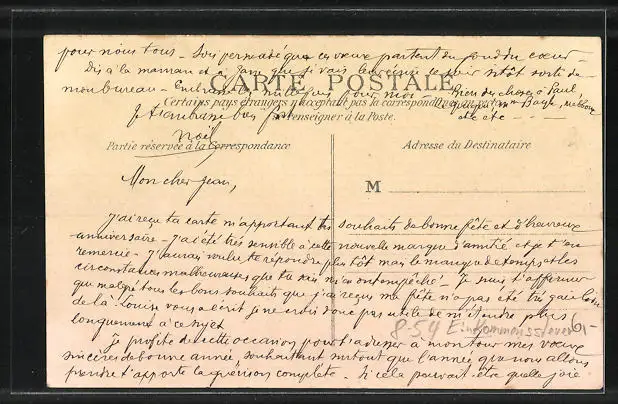 pour nous tous - Sois persuadé que ces vœux partent du fond du cœur -
Dis à la maman et à Jane que je vais leur écrire ce soir sitôt sorti de
mon bureau - Embrasse les mille fois pour moi -
Bien des choses à Paul,
Je t'embrasse bien fort
Noël
CARTE POSTALE
Certains pays étrangers n'acceptent pas la correspondance
se renseigner à la Poste.
Partie réservée à la Correspondance
Adresse du Destinataire
M
Mon cher Jean,
J'ai reçu ta carte m'apportant tes souhaits de bonne fête et d'heureux
anniversaire - J'ai été très sensible à cette nouvelle marque d'amitié et je t'en
remercie - J'aurais voulu te répondre plus tôt mais le manque de temps et les
circonstances malheureuses que tu sais m'en ont empêché - Je puis t'affirmer
que malgré tous les bons souhaits que j'ai reçus ma fête n'a pas été très gaie
de là. Louise vous a écrit je ne crois donc pas utile de m'étendre plus
longuement à ce sujet
8-54
Je profite de cette occasion pour t'adresser à mon tour mes vœux
sincères de bonne année, souhaitant surtout que l'année que nous allons
prendre t'apporte la guérison complète - Si cela pouvait être quelle joie